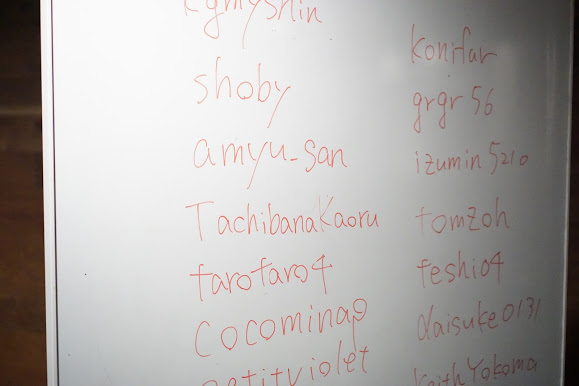 shoby
amyu-san
TachibanaKaoru
tarotaro4
cocominap
konifar
grgr56
izumin5210
tomzoh
teshi04
daisuke0131